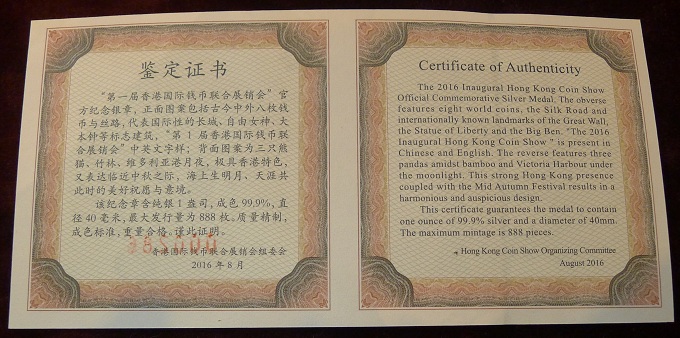 鉴定证书
“第一届香港国际钱币联合展销会”官
方纪念银章，正面图案包括古今中外八枚钱
币与丝路，代表国际性的长城、自由女神、大
本钟等标志建筑，“第1届香港国际钱币联
合展销会”中英文字样；背面图案为三只熊
猫、竹林、维多利亚港月夜，极具香港特色，
又表达临近中秋之际，海上生明月、天涯共
此时的美好祝愿与意境。
该纪念章含纯银1盎司，成色99.9%，直
径40毫米，最大发行量为888枚。质量精制，
成色标准，重量合格。谨此证明。
香港国际钱币联合展销会组委会
2016年8月
Certificate of Authenticity
The 2016 Inaugural Hong Kong Coin Show
Official Commemorative Silver Medal. The obverse
features eight world coins, the Silk Road and
internationally known landmarks of the Great Wall,
the Statue of Liberty and the Big Ben. "The 2016
Inaugural Hong Kong Coin Show " is present in
Chinese and English. The reverse features three
pandas amidst bamboo and Victoria Harbour under
the moonlight. This strong Hong Kong presence
coupled with the Mid Autumn Festival results in a
harmonious and auspicious design.
This certificate guarantees the medal to contain
one ounce of 99.9% silver and a diameter of 40mm.
The maximum mintage is 888 pieces.
Hong Kong Coin Show Organizing Committee
August 2016